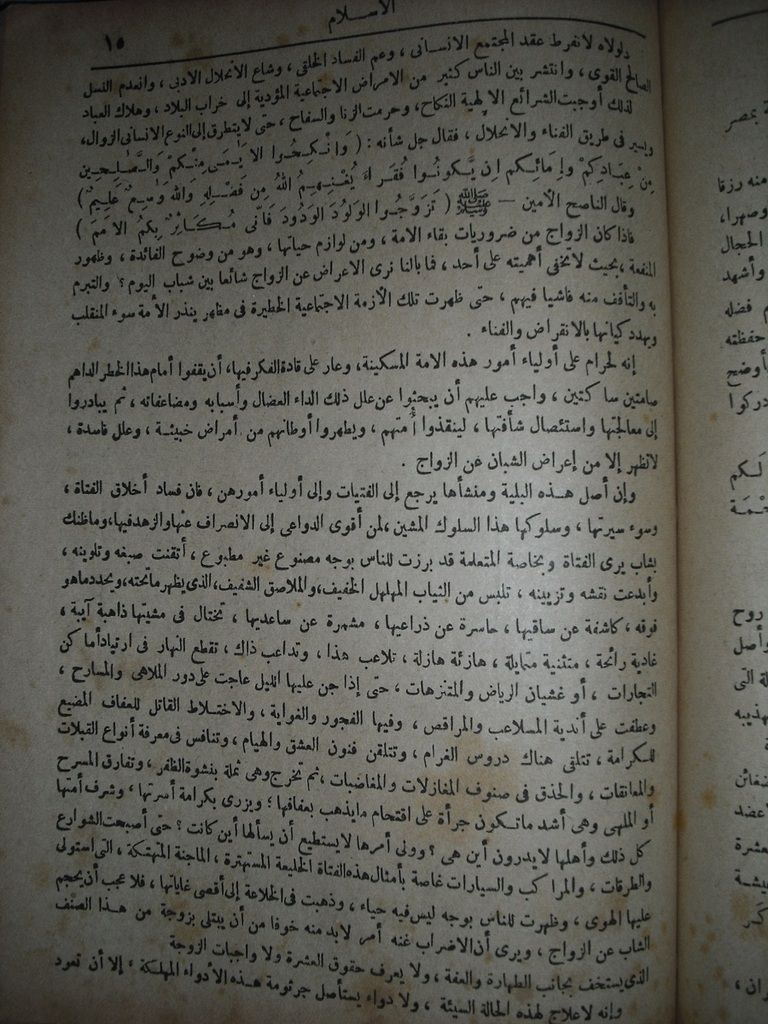 الاسلام
١٥
ولولاه لانفرط عقد المجتمع الانسانى ، وعم الفساد الخلقى ، وشاع الانحلال الادبى ، وانعدم النسل
الصالح القوى ، وانتشر بين الناس كثير من الامراض الاجتماعية المؤدية إلى خراب البلاد ، وهلاك العباد
لذلك أوجبت الشرائع الالهية النكاح ، وحرمت الزنا والسفاح ، حتى لا يتطرق إلى النوع الانسانى الزوال ،
ويسير فى طريق الفناء والانحلال ، فقال جل شأنه : ( وَانْكِحُوا الايَامَى مِنْكُمْ وَالصَّالِحِينَ
مِنْ عِبَادِكُمْ وَإِمَائِكُم إن يَّكونُوا فُقَرَاءَ يُغْنِهِمُ اللهُ مِن فَضْلِهِ وَاللهُ وَاسِعٌ عَلِيمٌ )
وقال الناصح الأمين — ﷺ ( تَزَوَّجُوا الوَلُودَ الوَدُودَ فَأنّى مُكَاثِرٌ بِكُمُ الامَمَ )
فاذا كان الزواج من ضروريات بقاء الامة ، ومن لوازم حياتها ، وهو من وضوح الفائدة ، وظهور
المنفعة ، بحيث لا تخفى أهميته على أحد ، فما بالنا نرى الاعراض عن الزواج شائعا بين شباب اليوم ؟ والتبرم
به والتأفف منه فاشيا فيهم ، حتى ظهرت تلك الأزمة الاجتماعية الخطيرة فى مظاهر ينذر الأمة سوء المنقلب
ويهدد كيانها بالانقراض والفناء .
إنه لحرام على أولياء أمور هذه الامة المسكينة ، وعار على قادة الفكر فيها ، أن يقفوا أمام هذا الخطر الداهم
صامتين ساكتين ، واجب عليهم أن يبحثوا عن علل ذلك الداء العضال وأسبابه ومضاعفاته ، ثم يبادروا
إلى معالجتها واستئصال شأفتها ، لينقذوا أُمتهم ، ويطهروا أوطانهم من أمراض خبيثة ، وعلل فاسدة ،
لا تظهر إلا من إعراض الشبان عن الزواج .
وإن أصل هذه البلية ومنشأها يرجع إلى الفتيات وإلى أولياء أمورهن ، فان فساد أخلاق الفتاة ،
وسوء سيرتها ، وسلوكها هذا السلوك المشين ، لمن أقوى الدواعى إلى الانصراف عنها والزهد فيها ، وما ظنك
بشاب يرى الفتاة وبخاصة المتعلمة قد برزت للناس بوجه مصنوع غير مطبوع ، أتقنت صبغه وتلوينه ،
وأبدعت نقشه وتزيينه ، تلبس من الثياب المهلهل الخفيف ، والملاصق الشفيف ، الذى يظهر ما تحته ، ويحدد ما هو
فوقه ، كاشفة عن ساقيها ، حاسرة عن ذراعيها ، مشمرة عن ساعديها ، تختال فى مشيتها ذاهبة آيبة ،
غادية رائحة ، متثنية متمايلة ، هازئة هازلة ، تلاعب هذا ، وتداعب ذاك ، تقطع النهار فى ارتياد أماكن
التجارات ، أو غشيان الرياض والمتنزهات ، حتى إذا جن عليها الليل عاجت على دور الملاهى والمسارح ،
وعطفت على أندية الملاعب والمراقص ، وفيها الفجور والغواية ، والاختلاط القاتل للعفاف المضيع
للكرامة ، تتلقى هناك دروس الغرام ، وتتلقن فنون العشق والهيام ، وتنافس فى معرفة أنواع القبلات
والمعانقات ، والحذق فى صنوف المغازلات والمغاضبات ، ثم تخرج وهى ثملة بنشوة الظفر ، وتفارق المسرح
أو الملهى وهى أشد ما تكون جرأة على اقتحام ما يذهب بعفافها ؛ ويزرى بكرامة أسرتها ؛ وشرف أمتها
كل ذلك وأهلها لا يدرون أين هى ؟ وولى أمرها لا يستطيع أن يسألها أين كانت ؟ حتى أصبحت الشوارع
والطرقات ، والمراكب والسيارات غاصة بأمثال هذه الفتاة الخليعة المستهترة ، الماجنة المتهتكة ، التى استولى
عليها الهوى ، وظهرت للناس بوجه ليس فيه حياء ، وذهبت فى الخلاعة إلى أقصى غاياتها ، فلا عجب أن يحجم
الشاب عن الزواج ، ويرى أن الاضراب عنه أمر لا بد منه خوفا من أن يبتلى بزوجة من هذا الصنف
الذى يستخف بجانب الطهارة والعفة ، ولا يعرف حقوق العشرة ولا واجبات الزوجة
وإنه لا علاج لهذه الحالة السيئة ، ولا دواء يستأصل جرثومة هذه الأدواء المهلكة ؛ إلا أن تعود
بمصر
منه رزقا
وصهرا،
الحجال
وأشهد
فضله
حفظته
أوضح
دركوا
لَكم
روح
وأصل
التى
عشرة